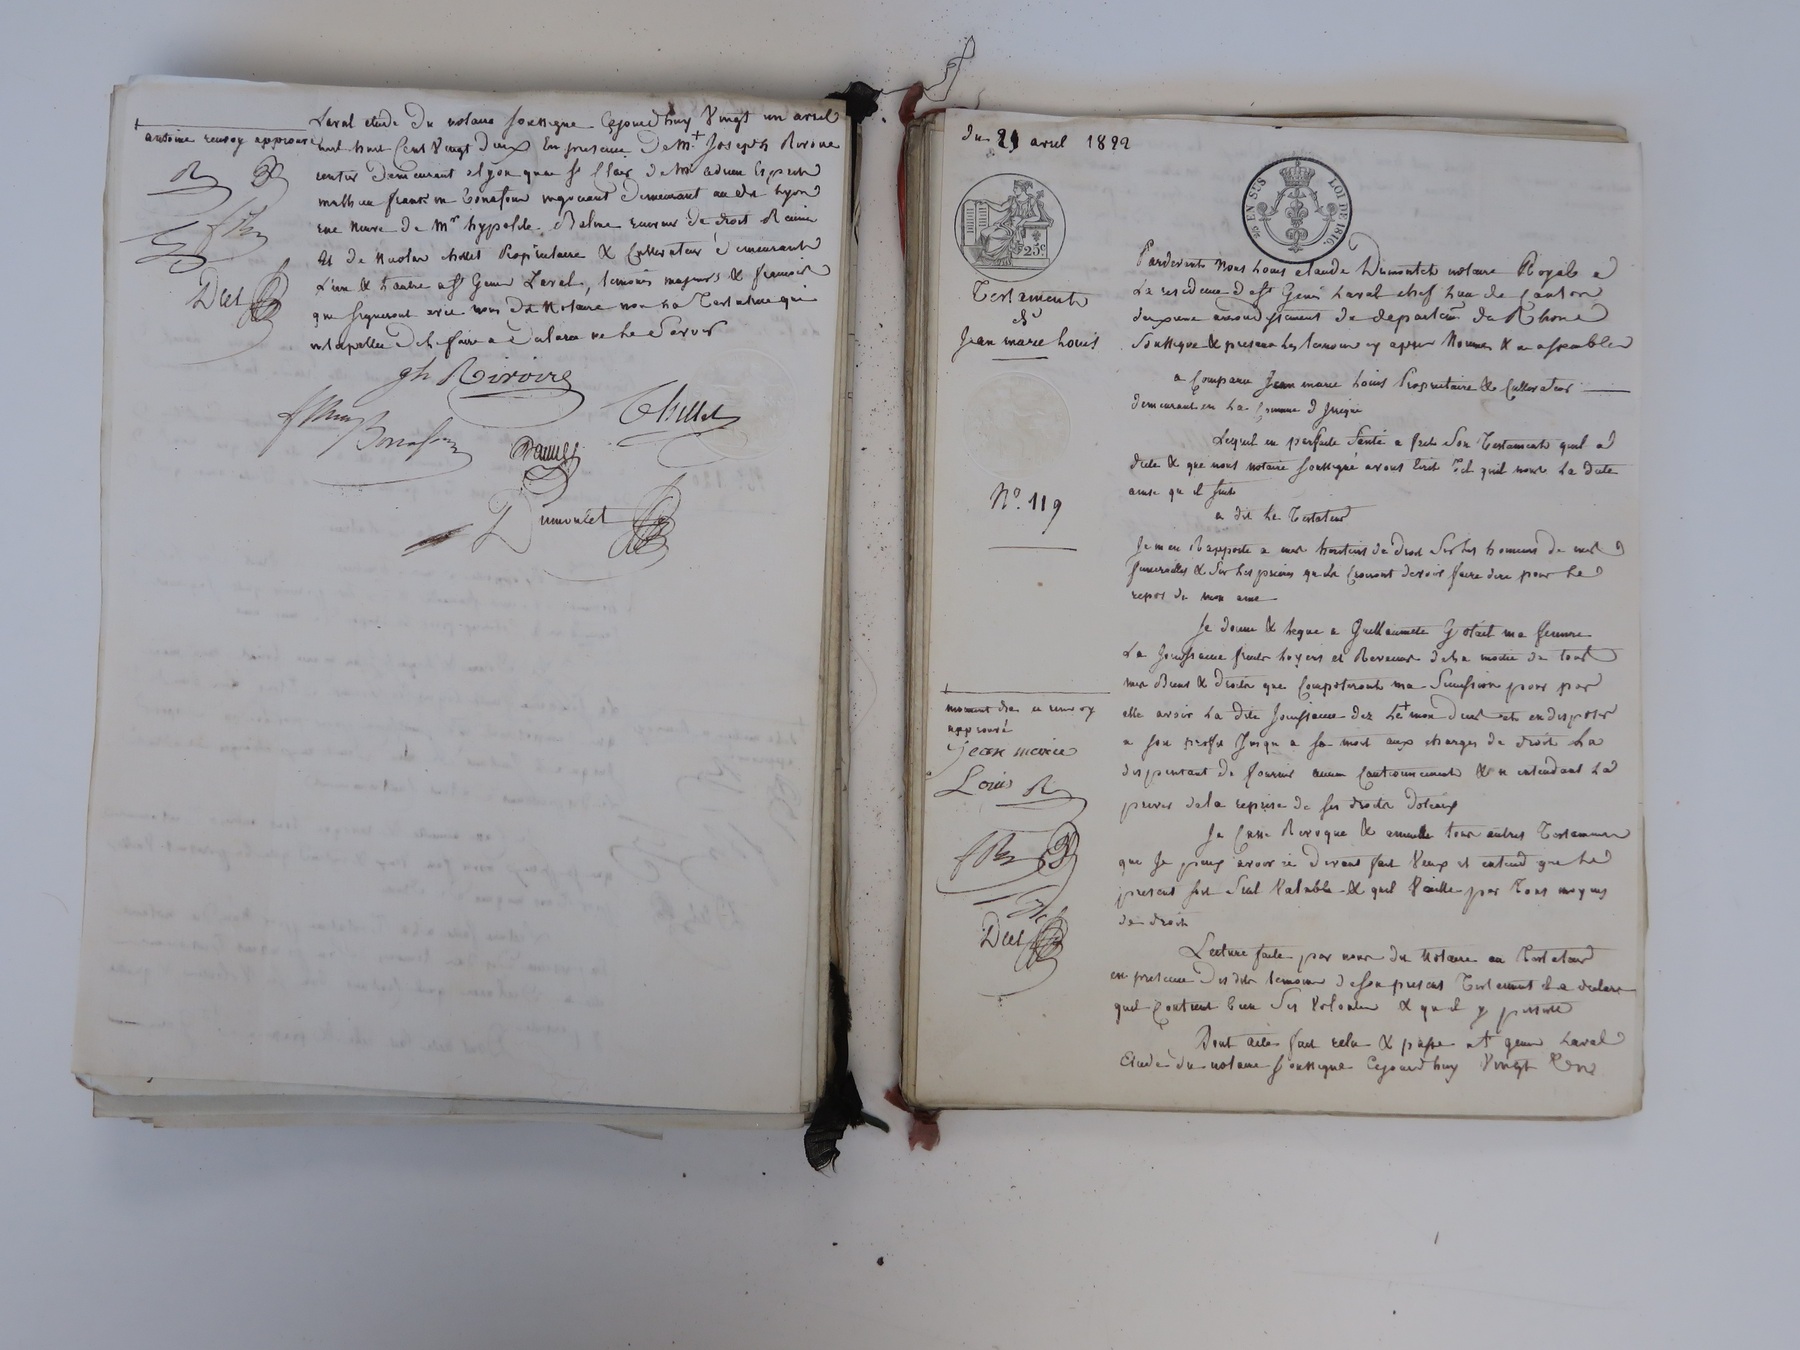 Laval etude du notaire soussigné Cejourdhuy Vingt un avril
antoine renvoy approuvé
mil huit Cent Vingt deux En presence de Mr + Joseph Rivoire
rentier demeurant a lyon quai St Clair, de Mr
negociant demeurant au dit Lyon
rue Neuve de Mr hypolite receveur de droit Reunis
Et de Nicolas Propriétaire & Cultivateur demeurant
L'un & L'autre a St Genis Laval, temoins majeurs & francois
qui signeront avec nous du Notaire non La Testatrice qui
interpellée de le faire a declaré ne le Savoir
Dt
gh Rivoire
Chillet
Dumontet
du 21 avril 1822
EN SUS
LOI DE 1816
25c
Testament
de
Jean marie Louis
Pardevant Nous Louis claude Dumontet notaire Royal a
La residence de St Genis Laval chef lieu de Canton
deuxieme arrondissement du departem du Rhone
Soussigné & presens Les temoins cy apres Nommés & assemblés
a Comparu Jean marie Louis Propriétaire & Cultivateur
demeurant en La Comune d'Irigni
Lequel en parfaite Santé a fait Son Testament quil a
dicté & que nous notaire soussigné avons Ecrit Tel quil nous La dicté
ainsi qu il suit
No. 119
a dit Le Testateur
Je m en Rapporte a mes heritiers de droit Sur Les honneurs de mes
funerailles & Sur Les prieres qu ils Croiront devoir faire dire pour Le
repos de mon ame
Je donne & Legue a Guillaumete Gotail ma femme
La Jouissance fruits Loyers et Revenus de La moitié de tous
mes Biens & droits que Composeront ma Succession pour par
elle avoir La dite Jouissance dez Le + mon deces et en disposer
a son profit Jusqu a sa mort aux charges de droit La
dispensant de fournir aucun Cautionnement & n entendant La
priver de la reprise de ses droits dotaux
+
moment de en renvoy
approuvé
jean marie
Louis R
Dt
Je Casse Revoque & annulle tous autres Testamens
que Je peux avoir ci devant fait Veux et entend que Le
present soit Seul Valable & quil Vaille par Tous moyens
de droit
Lecture faite par nous du Notaire au Testateur
en presence des dits temoins de son present Testament il a declaré
quil Contient bien Ses Volontés & quil y persiste
Dont acte fait relu & passé a St genis Laval
Etude du notaire soussigné Cejourdhuy Vingt un